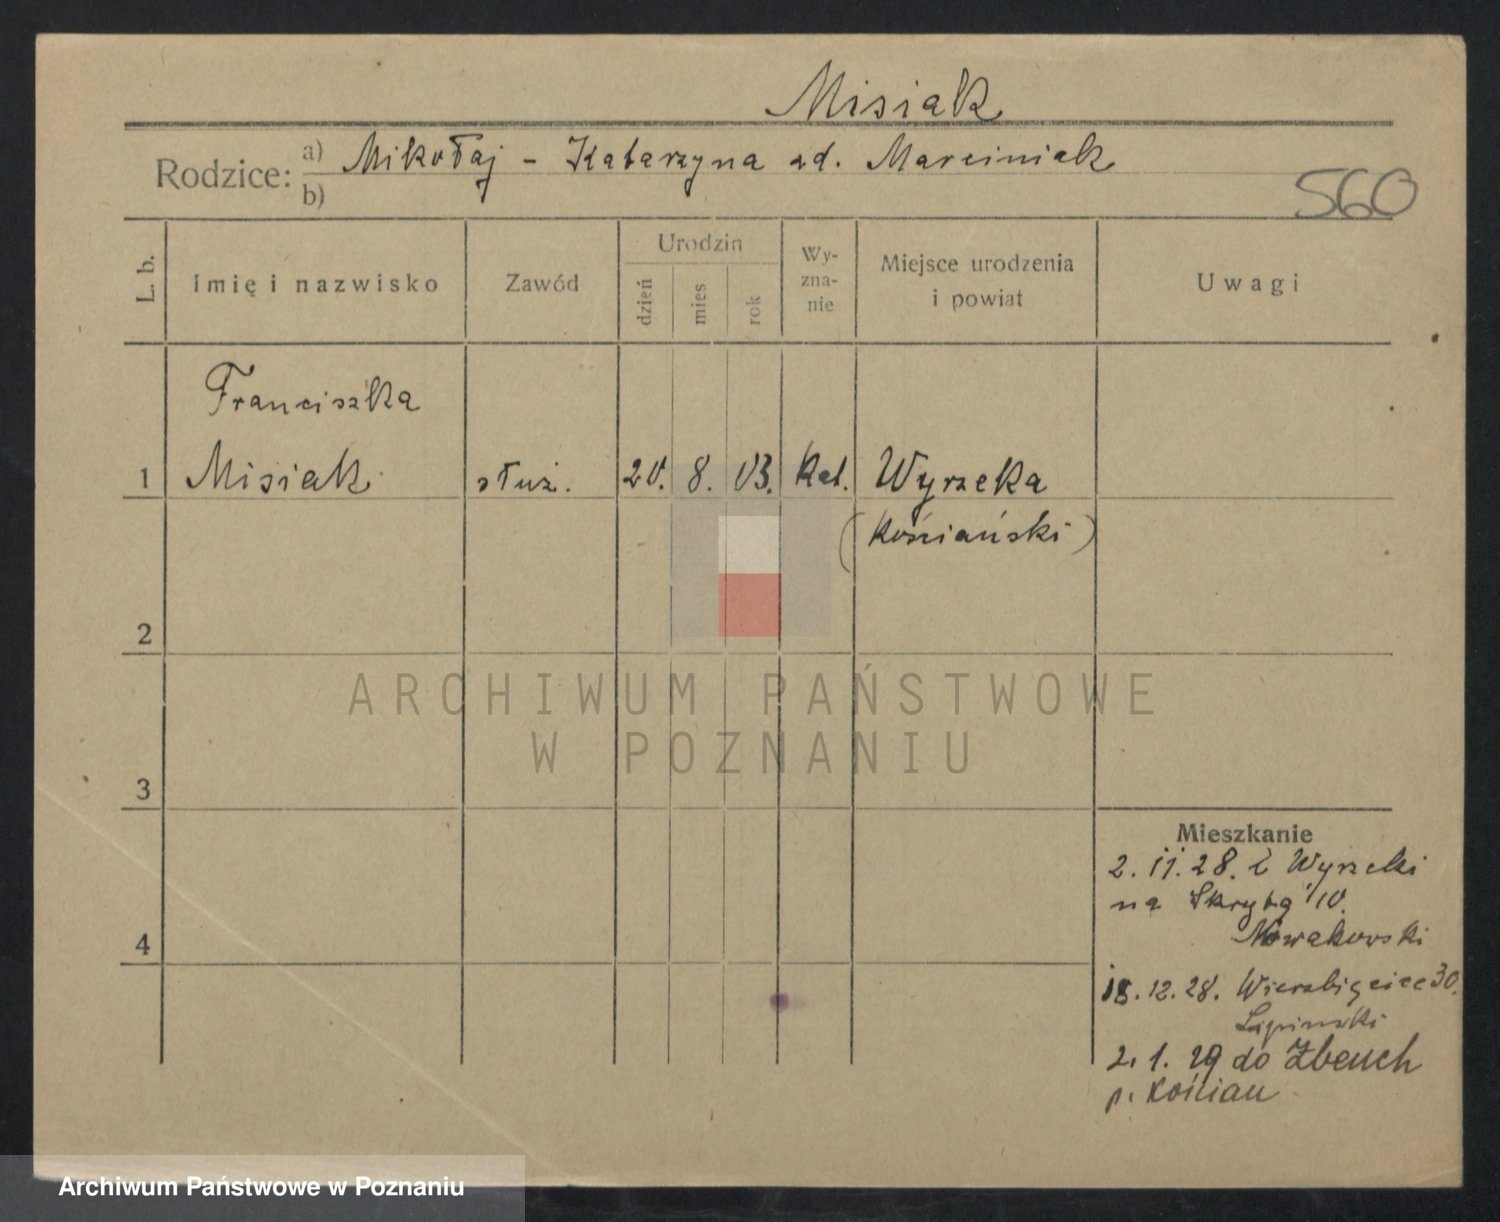 Misiak
Rodzice: a) Mikołaj - Katarzyna zd. Marciniak
b)
560
L. b.
Imię i nazwisko
Zawód
Urodzin
dzień
mies
rok
Wy-
zna-
nie
Miejsce urodzenia
i powiat
Uwagi
Franciszka
1 Misiak służ. 20. 8. 03. kat. Wyrzeka
(Kościański)
2
ARCHIWUM PAŃSTWOWE
W POZNANIU
3
Mieszkanie
2. 11. 28. z Wyrzeki
na Skrytą 10.
Nowakowski
4
18. 12. 28. Wierzbięcice 30.
Lipiński
2. 1. 29 do
p. Kościan
Archiwum Państwowe w Poznaniu